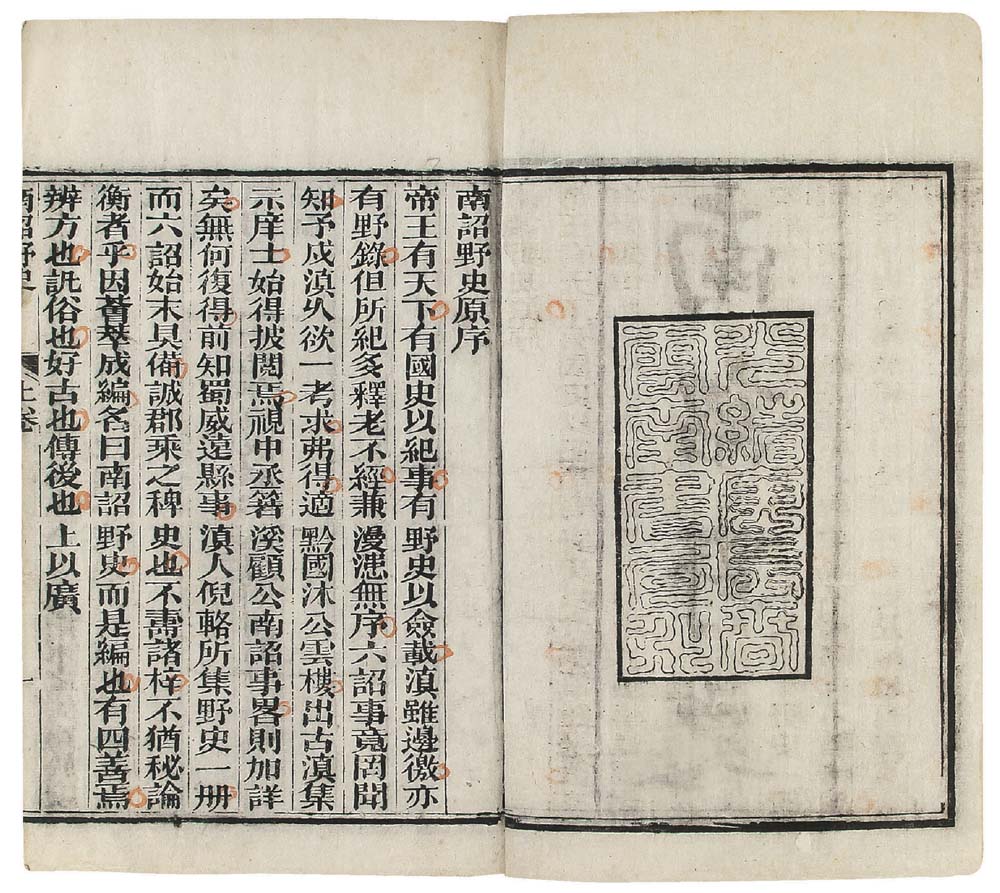 光緒庚辰
雲南書局刊
南詔野史原序
帝王有天下有國史以紀事有野史以僉載滇雖邊徼亦
有野錄但所紀多釋老不經兼漫漶無序六詔事竟罔聞
知予戍滇久欲一考求弗得適黔國沐公雲樓出古滇集
示庠士始得披閱焉視中丞箬溪顧公南詔事畧則加詳
矣無何復得前知蜀威遠縣事滇人倪輅所集野史一册
而六詔始末具備誠郡乘之稗史也不需諸梓不猶秘論
衡者乎因薈萃成編名曰南詔野史而是編也有四善焉
辨方也訊俗也好古也傳後也上以廣
南詔野史 上卷 一